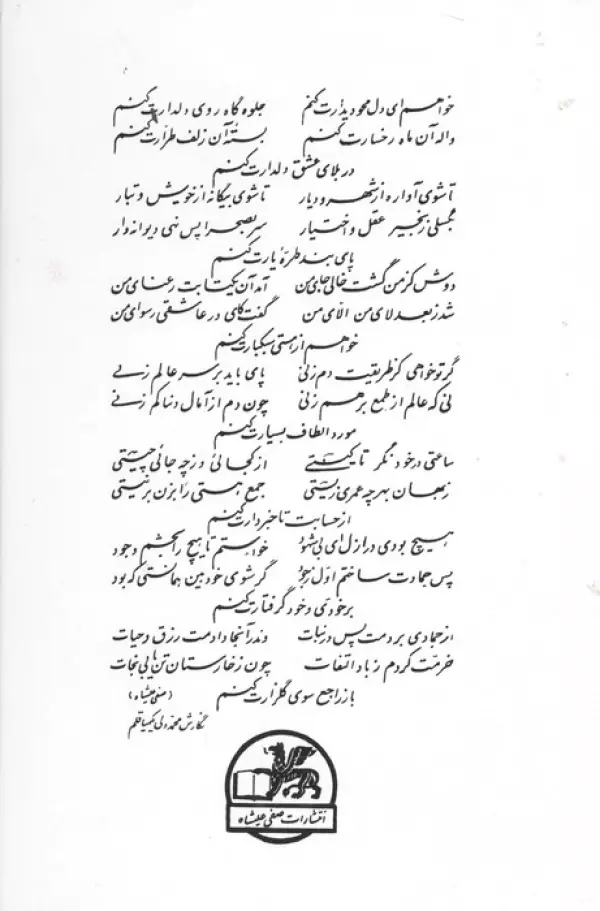 خواهم ای دل محو دیدارت کنم جلوه گاه روی دلدارت کنم
واله آن ماه رخسارت کنم بستهٔ آن زلف طرارت کنم
در بلای عشق دلدارت کنم
تا شوی آواره از شهر و دیار تا شوی بیگانه از خویش و تبار
بگسلی زنجیر عقل و اختیار سر بصحرا پس نهی دیوانه وار
پای بند طرهٔ یارت کنم
دوش کز من گشت خالی جای من آمد آن یکتا بت رعنای من
شد ز بعد لای من الّای من گفت کای در عاشقی رسوای من
خواهم از هستی سبکبارت کنم
گر تو خواهی کز طریقت دم زنی پای باید بر سر عالم زنی
نی که عالم از طمع بر هم زنی چون دم از آمال دنیا کم زنی
مورد الطاف بسیارت کنم
ساعتی در خود نگر تا کیستی از کجائی و ز چه جائی چیستی
در جهان بهر چه عمری زیستی جمع هستی را بزن بر نیستی
از حسابت تا خبردارت کنم
هیچ بودی در ازل ای بی شهود خواستم تا هیچ را بخشم وجود
پس جمادت ساختم اول ز جود گر شوی خودبین همانستی که بود
بر خودی و خود گرفتارت کنم
از جمادی بردمت پس در نبات وندر آنجا دادمت رزق و حیات
خرمت کردم ز باد التفات چون ز خارستان تن یابی نجات
باز راجع سوی گلزارت کنم
(صفی علیشاه)
نگارش محمد ولی کیمیا قلم
انتشارات صفی علیشاه